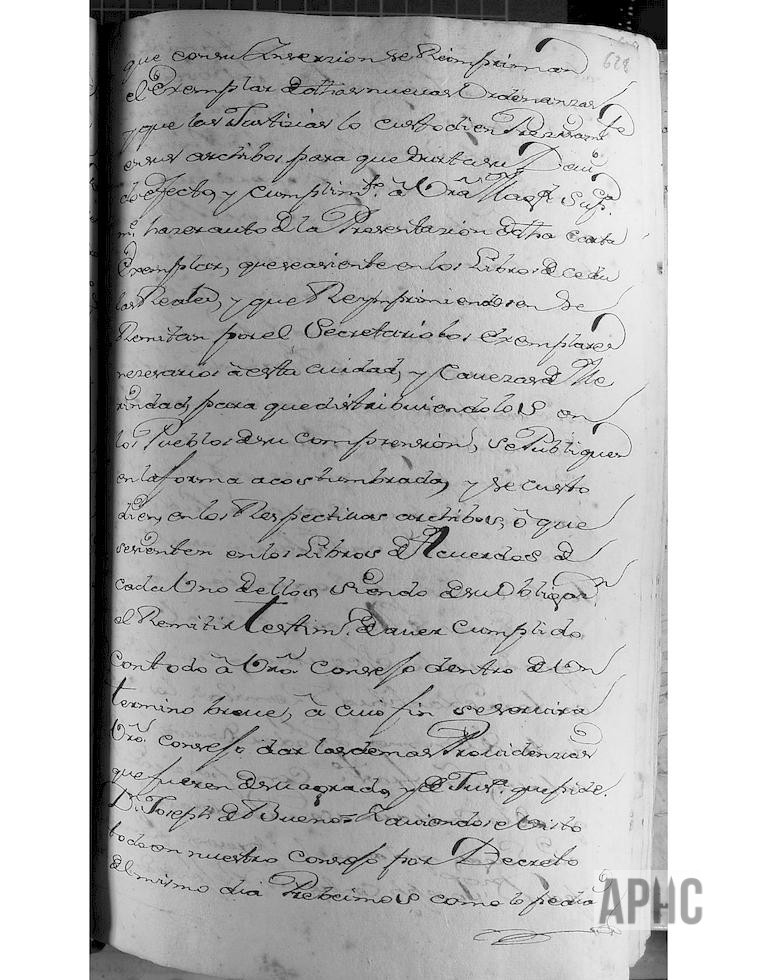 628
que con su Inserzion se Reimpriman
el Exemplar de dhas nuevas Ordenanzas
y que las Justizias lo custodien
en sus archibos para que surta su Devi
do efecto, y cumplimto. â Vrã Magd. Supc.
mte. hazer auto de la Presentazion de dha carta
Exemplar, que se asiente en los Libros de cedu
las Reales, y que Reymprimiendosen se
Remitan por el Secretario los Exemplares
nezesarios â esta ciudad, y Cavezas de Me
rindad, para que distribuiendolos en
los Pueblos de su comprension, se Publiquen
en la forma acostumbrada, y se custo
dien, en los Respectivos archibos, ô que
se sienten en los Libros de Acuerdos de
cada Uno de llos, siendo de su Obligazn.
el Remitir testimo. de aver cumplido
con todo â Vrõ. Consejo dentro de Un
termino breve, â cuio fin se servirá
Vrõ. consejo dar las demas Providenzias
que fueren de su agrado, y de Justa. que pide.
Dn. Joseph de Bueno = Y aviendose visto
todo en nuestro consejo por Decreto
del mismo dia Prebeimos como lo pedia
APHC